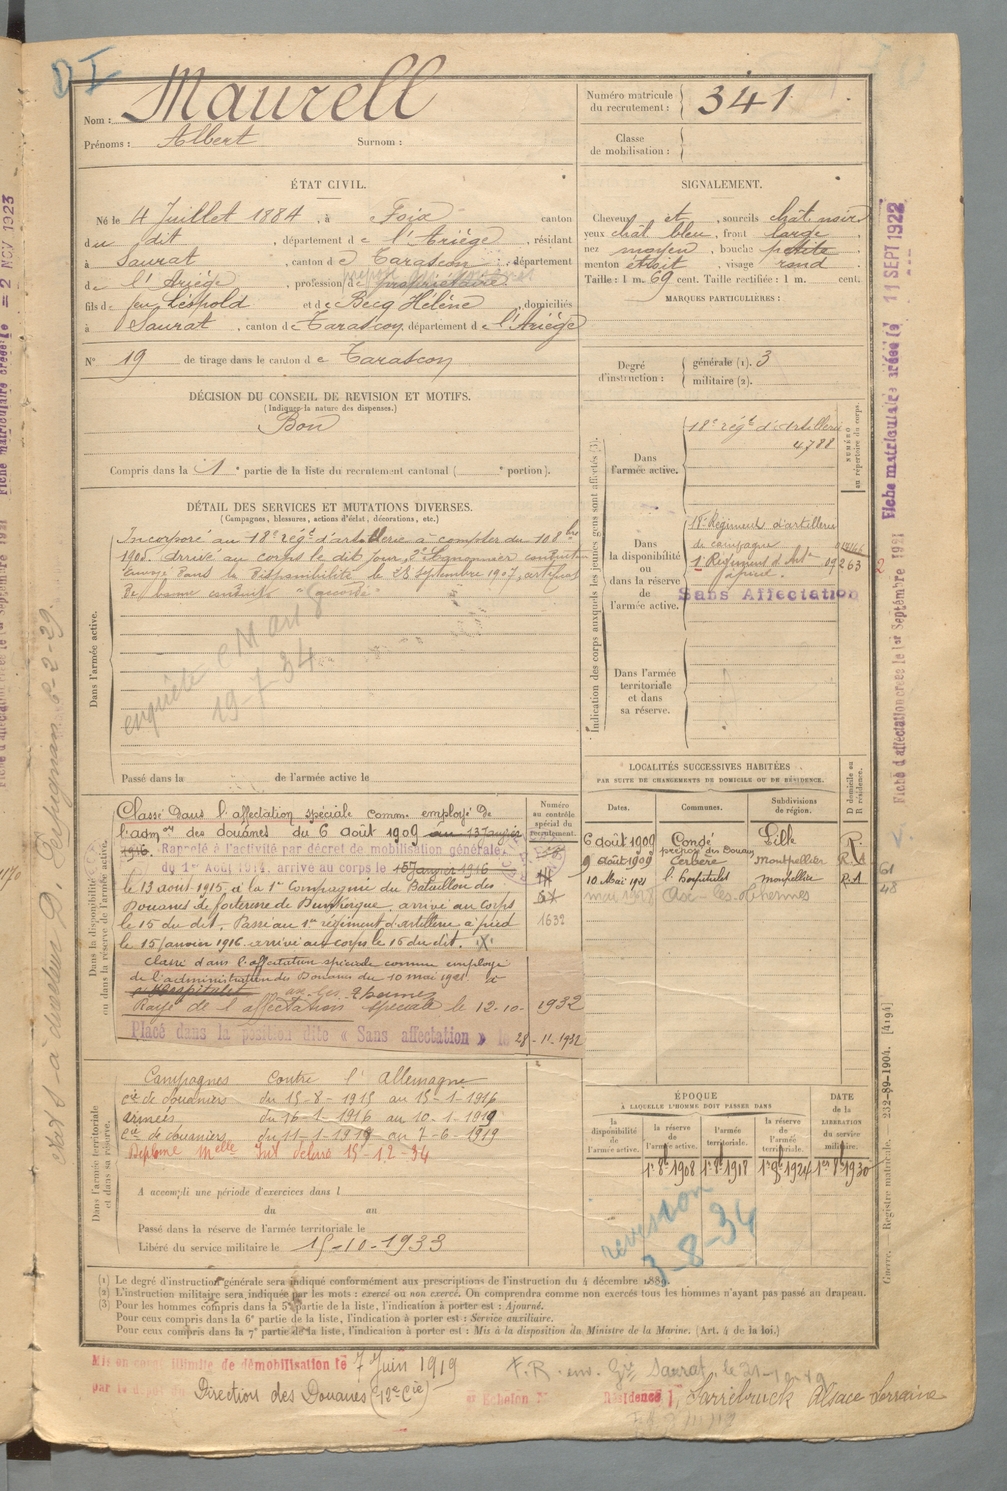 D I
Nom : Maurell
Prénoms : Albert Surnom :
Numéro matricule du recrutement : 341
Classe de mobilisation :
ÉTAT CIVIL.
Né le 4 Juillet 1884, à Foix canton
du dit, département de l'Ariège, résidant
à Saurat, canton de Tarascon, département
de l'Ariège, profession de propriétaire
fils de feu Léopold et de Becq Hélène, domiciliés
à Saurat, canton de Tarascon, département de l'Ariège
N° 19 de tirage dans le canton de Tarascon
SIGNALEMENT.
Cheveux et, sourcils chât noir
yeux chât bleu, front large
nez moyen, bouche petite
menton étroit, visage rond
Taille : 1 m. 69 cent. Taille rectifiée : 1 m. cent.
MARQUES PARTICULIÈRES :
Degré d'instruction : générale (1). 3
militaire (2).
DÉCISION DU CONSEIL DE REVISION ET MOTIFS.
(Indiquer la nature des dispenses.)
Bon
Compris dans la 1e partie de la liste du recrutement cantonal ( e portion).
DÉTAIL DES SERVICES ET MUTATIONS DIVERSES.
(Campagnes, blessures, actions d'éclat, décorations, etc.)
Dans l'armée active.
Incorporé au 18e régt d'artillerie à compter du 10 8bre
1905. Arrivé au corps le dit jour, 2e Canonnier conducteur
Envoyé dans la disponibilité le 28 septembre 1907, certificat
de bonne conduite "accordé"
enquête
19-7-34
Passé dans la de l'armée active le
Indication des corps auxquels les jeunes gens sont affectés (3).
NUMÉRO au répertoire du corps.
Dans l'armée active.
18e régt d'Artillerie
4.788
Dans la disponibilité ou dans la réserve de l'armée active.
18e Régiment d'artillerie
de campagne
1 Régiment d'Artie 09263
à pied.
Sans Affectation
Dans l'armée territoriale et dans sa réserve.
LOCALITÉS SUCCESSIVES HABITÉES
PAR SUITE DE CHANGEMENTS DE DOMICILE OU DE RÉSIDENCE.
Dates. Communes. Subdivisions de région. D domicile ou R résidence.
6 août 1909 Condé Lille R.
prépos des Douan
9 août 1909 Cerbère Montpellier R.A
10 Mai 1921 l'Hospitalet Montpellier RA
mai 1928 Ax-les-Thermes
Dans la disponibilité ou dans la réserve de l'armée active.
Numéro au contrôle spécial du recrutement.
Classé dans l'affectation spéciale comme employé de
l'admon des douanes du 6 août 1909 au 13 Janvier
1916. Rappelé à l'activité par décret de mobilisation générale
du 1er Août 1914, arrivé au corps le 15 Janvier 1916
le 13 aout 1915 à la 1re Compagnie du Bataillon des
Douanes de forteresse de Dunkerque. arrivé au corps
le 15 du dit. Passé au 1er régiment d'artillerie à pied
le 15 Janvier 1916. arrivé au corps le 15 du dit. X
1632
Classé dans l'affectation spéciale comme employé
de l'administration des Douanes du 10 mai 1921 à
l'Hospitalet ax-les-Thermes
Rayé de l'affectation spéciale le 12-10-1932
Placé dans la position dite « Sans affectation » le 28-11-1932
Dans l'armée territoriale et dans sa réserve.
Campagnes Contre l'Allemagne
Cie de douaniers du 15-8-1915 au 15-1-1916
armées du 16-1-1916 au 10-1-1919
Cie de douaniers du 11-1-1919 au 7-6-1919
Diplome
A accompli une période d'exercices dans l
du au
Passé dans la réserve de l'armée territoriale le
Libéré du service militaire le 15-10-1933
ÉPOQUE
À LAQUELLE L'HOMME DOIT PASSER DANS
la disponibilité de l'armée active. la réserve de l'armée active. l'armée territoriale. la réserve de l'armée territoriale.
DATE de la LIBÉRATION du service militaire.
1r 8b 1908 1r 8b 1918 1r 8b 1924 1er 8b 1930
revision
3-8-34
(1) Le degré d'instruction générale sera indiqué conformément aux prescriptions de l'instruction du 4 décembre 1889.
(2) L'instruction militaire sera indiquée par les mots : exercé ou non exercé. On comprendra comme non exercés tous les hommes n'ayant pas passé au drapeau.
(3) Pour les hommes compris dans la 5e partie de la liste, l'indication à porter est : Ajourné.
Pour ceux compris dans la 6e partie de la liste, l'indication à porter est : Service auxiliaire.
Pour ceux compris dans la 7e partie de la liste, l'indication à porter est : Mis à la disposition du Ministre de la Marine. (Art. 4 de la loi.)
Mis en congé illimité de démobilisation le 7 Juin 1919
par le dépôt du Direction des Douanes (12e Cie) e Echelon N° Résidence Sarrebruck Alsace Lorraine
Fiche matriculaire créée le 11 SEPT 1922
Fiche d'affectation créée le 1er Septembre 1921
61
48
Guerre. — Registre matricule. — 232-89-1904. [4194]
Fiche matriculaire créée le = 2 NOV 1923